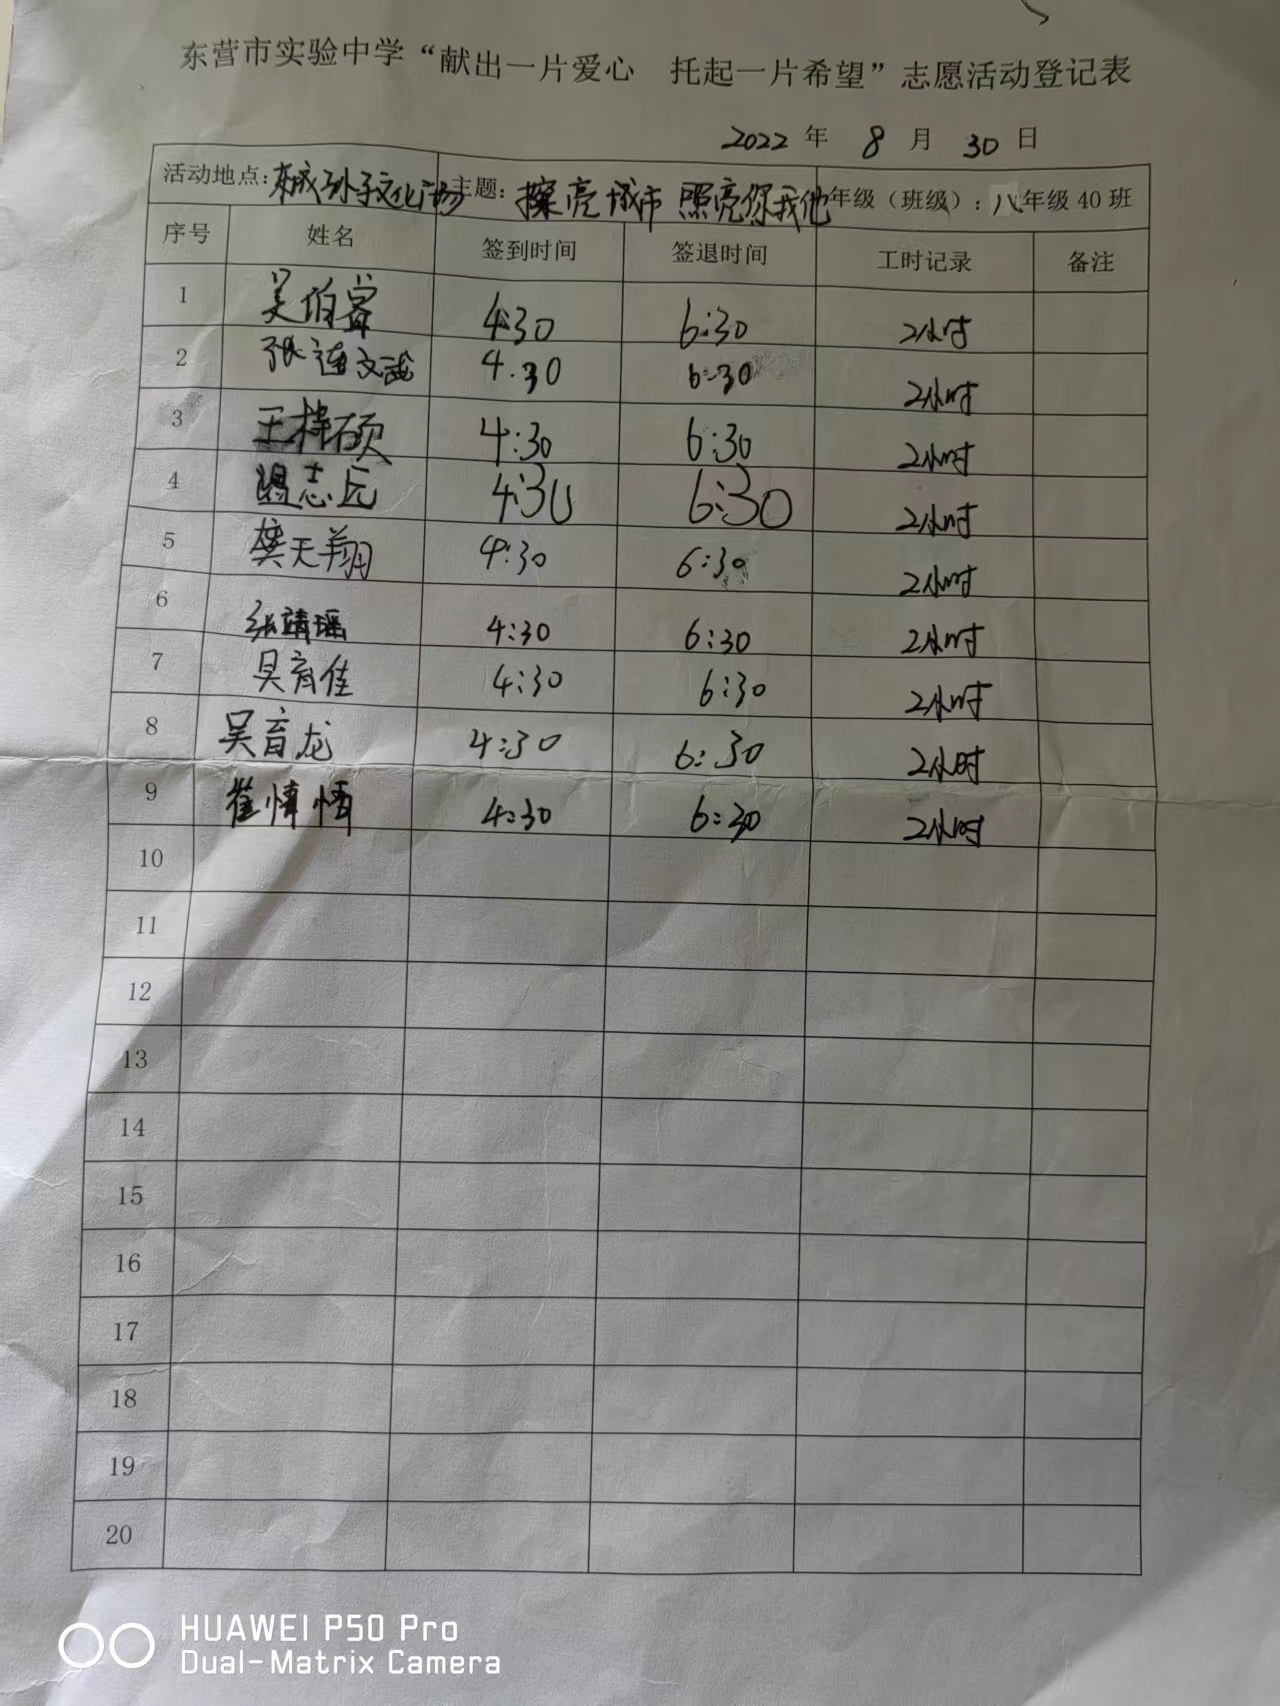 东营市实验中学“献出一片爱心 托起一片希望”志愿活动登记表
2022 年 8 月 30 日
活动地点：东城孙子文化广场 主题：擦亮城市 照亮你我他 年级（班级）：八年级 40 班
序号 姓名 签到时间 签退时间 工时记录 备注
1 吴伯睿 4:30 6:30 2小时
2 张连文 4.30 6:30 2小时
3 王梓硕 4:30 6:30 2小时
4 温志远 4:30 6:30 2小时
5 樊天翔 4:30 6:30 2小时
6 张靖瑶 4:30 6:30 2小时
7 吴育佳 4:30 6:30 2小时
8 吴育龙 4:30 6:30 2小时
9 崔 4:30 6:30 2小时
10
11
12
13
14
15
16
17
18
19
20
HUAWEI P50 Pro
Dual-Matrix Camera